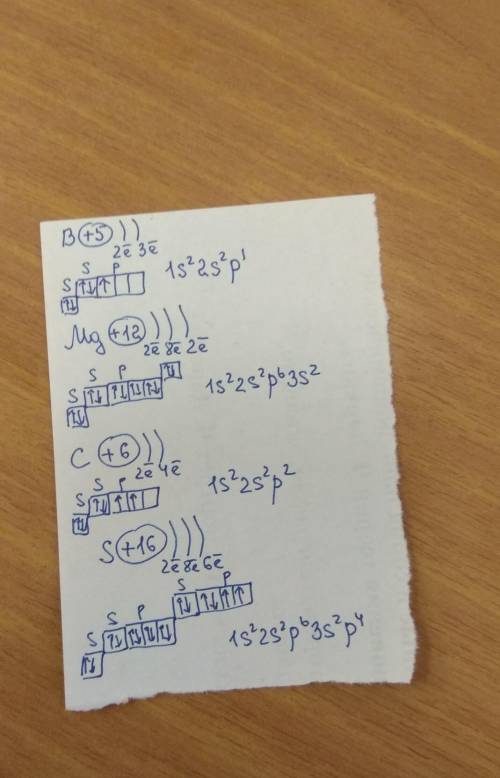 B +5 ) )
2ē 3ē
S P
S ↑↓ ↑
↑↓
1s²2s²p¹
Mg +12 ) ) )
2ē 8ē 2ē
↑↓
S P
S ↑↓ ↑↓ ↑↓ ↑↓
↑↓
1s²2s²p⁶3s²
C +6 ) )
2ē 4ē
S P
S ↑↓ ↑ ↑
↑↓
1s²2s²p²
S +16 ) ) )
2ē 8ē 6ē
S P
↑↓ ↑↓ ↑ ↑
S P
S ↑↓ ↑↓ ↑↓ ↑↓
↑↓
1s²2s²p⁶3s²p⁴